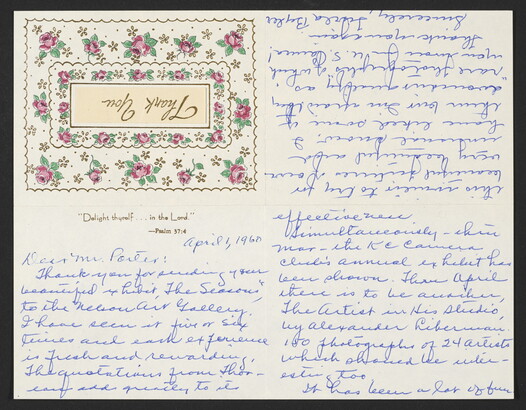 Thank You
"Delight thyself . . . in the Lord."
—Psalm 37:4
April 1, 1960
Dear Mr. Porter:
Thank you for sending your
beautiful exhibit, The Seasons,
to the Nelson Art Gallery.
I have seen it five or six
times and each experience
is fresh and rewarding.
The quotations from Thor-
eau adds greatly to its
effectiveness.
Simultaneously - thru
mar - the K C Camera
Club's annual exhibit has
been shown. Then April
there is to be another,
The Artist in His Studio,
by Alexander Liberman.
150 photographs of 24 artists
which should be inter-
esting too.
It has been a lot of fun
this winter to try for
beautiful pictures
very beautiful
I
have liked some of
them but
rare photographs which
you U.S. Camera!
Thank you again
Sincerely, Byler